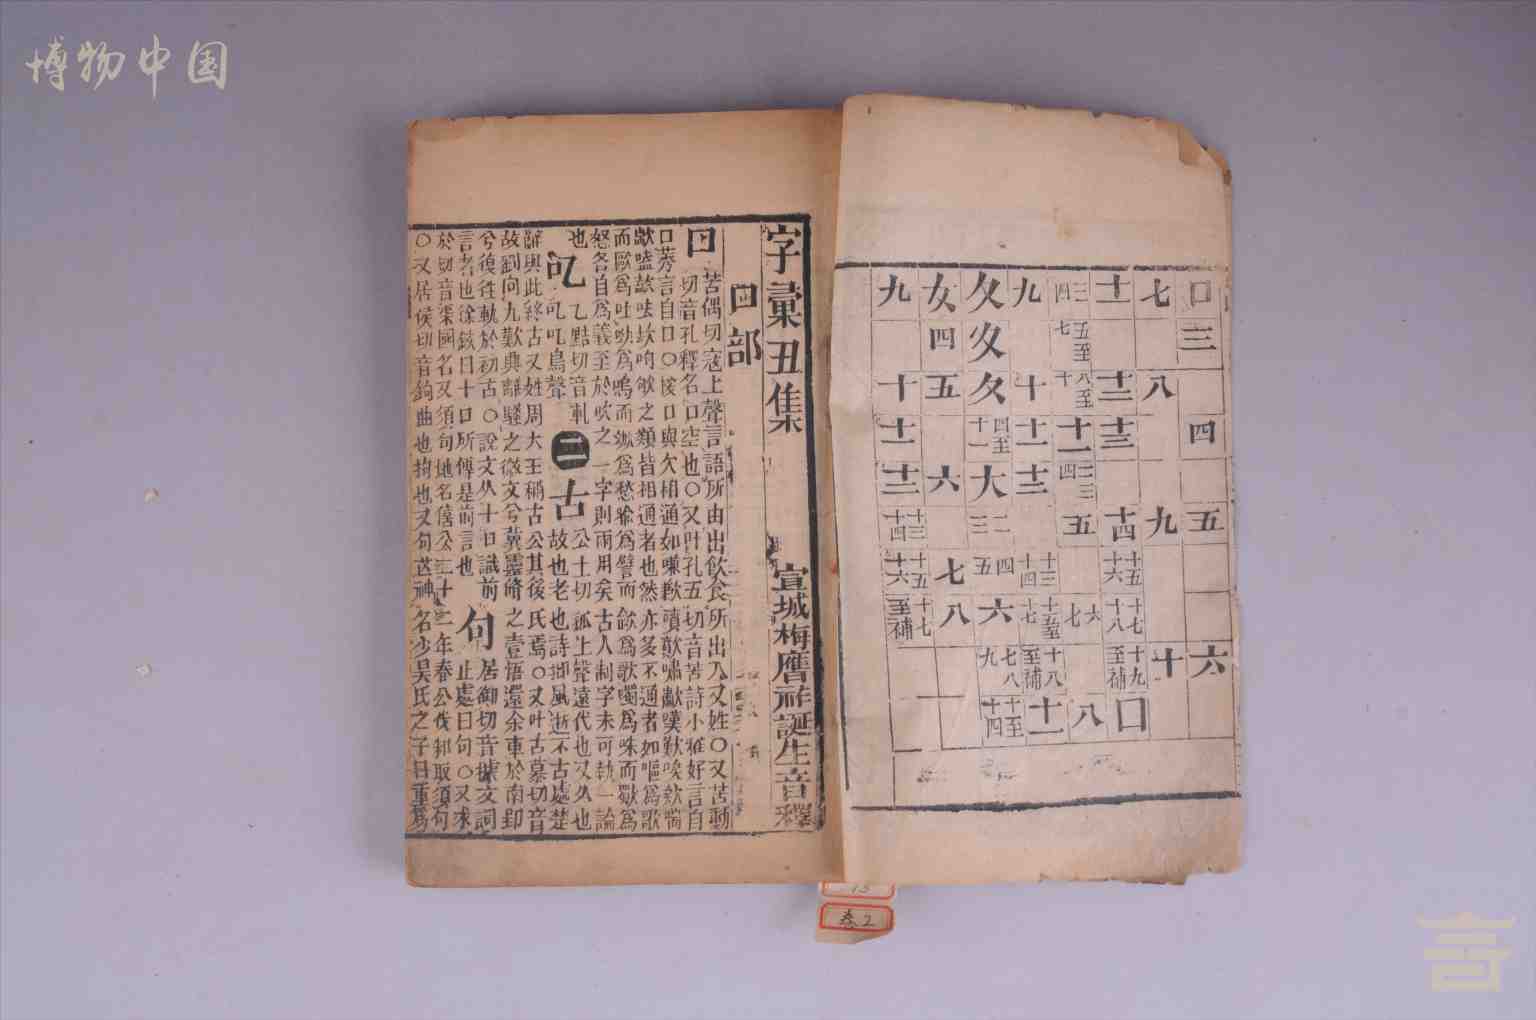 博物中国
口 三 四 五 六
七 八 九 十
十一 十二 十三 十四 十五十六 十七十八 十九至補 囗
二三四 五至七 八至十 土 二三四 五 六七 八
九 十 十一 十二 十三十四 十五至十七 十八至補 士
夂 夊 夕 四至十一 大 一二三 四五 六 七八九 十至十四
女 四 五 六 七 八
九 十 十一 十二 十三十四 十五十六 十七至補
字彙丑集 宣城梅膺祚誕生音釋
口部
口 苦偶切寇上聲言語所由出飲食所出入又姓〇又苦動
切音孔釋名口空也〇又叶孔五切音苦詩小雅好言自
口莠言自口〇按口與欠相通如嗛歉嘳㱁嘯歗嘆歎唉欸喘
歂嗑㰤呿㰦呴欨之類皆相通者也然亦多不通者如嘔為歌
而歐為吐呦為鳴而㰶為愁喻為譬而歈為歌噣為咮而歜為
怒各自為義至於吹之一字則兩用矣古人制字未可執一論
也 㕤 乙黠切音軋㕤㕤鳥聲 二 古 公土切孤上聲遠代也又久也
故也老也詩邶風逝不古處楚
辭與此終古又姓周大王稱古公其後氏焉〇又叶古慕切音
故劉向九歎興離騷之微文兮冀靈脩之壹悟還余車於南郢
兮復往軌於初古〇說文从十口識前
言者也徐鉉曰十口所傳是前言也 句 居御切音據文詞
止處曰句〇又求
於切音渠國名又須句地名僖公二十二年春公伐邾取須句
〇又居侯切音鉤曲也拘也又句芒神名少昊氏之子曰重為
卷2